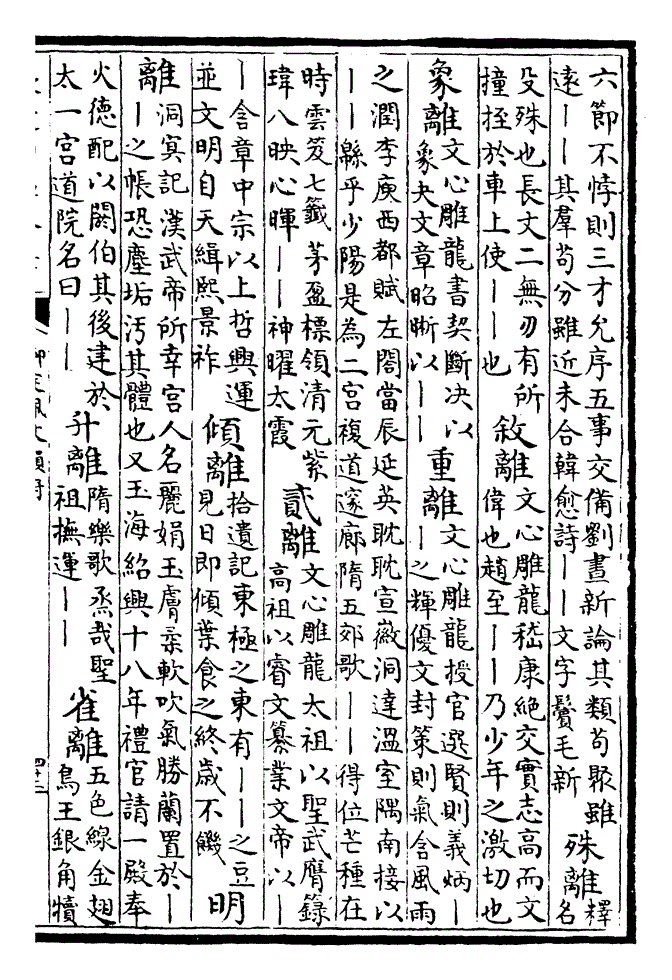 六節不悖則三才允序五事交備劉晝新論其類苟聚雖
遠丨丨其羣苟分雖近未合韓愈詩丨丨文字鬢毛新
殊離
釋
名
殳殊也長丈二無刃有所
撞挃於車上使丨丨也
敘離
文心雕龍嵇康絶交實志高而文
偉也趙至丨丨乃少年之激切也
象離
文心雕龍書契斷决以
象夬文章昭晣以丨丨
重離
文心雕龍授官選賢則義炳丨
丨之輝優文封策則氣含風雨
之潤李庾西都賦左閤當辰延英耽耽宣徽洞達溫室隅南接以
丨丨緜乎少陽是為二宮複道邃廊隋五郊歌丨丨得位芒種在
時雲笈七籤茅盈標領清元紫
瑋八映心暉丨丨神曜太霞
貳離
文心雕龍太祖以聖武膺籙
高祖以睿文纂業文帝以丨
丨含章中宗以上哲興運
並文明自天緝熙景祚
傾離
拾遺記東極之東有丨丨之豆
見日即傾葉食之終歲不饑
明
離
洞冥記漢武帝所幸宮人名麗娟玉膚柔軟吹氣勝蘭置於丨
丨之帳恐塵垢汚其體也又玉海紹興十八年禮官請一殿奉
火德配以閼伯其後建於
太一宮道院名曰丨丨
升離
隋樂歌烝哉聖
祖撫運丨丨
雀離
五色線金翅
鳥王銀角犢